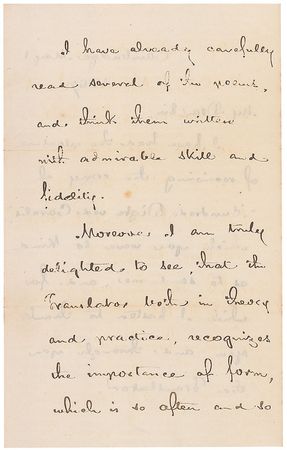 I have already carefully
read several of the poems,
and think them written
with admirable skill and
fidelity.
Moreover I am truly
delighted to see, that the
Translator both in theory
and practice, recognizes
the importance of form,
which is so often and so